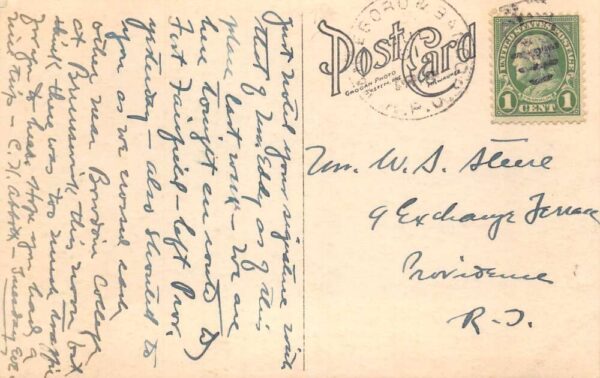 Just noted your signature with
that of Wm Eddy as of this
place last week - We are
here tonight en route to
Fort Fairfield - left Prov.
yesterday - also shouted to
you as we crossed each
other near Bowdoin College
at Brunswick this noon but
think there was too much traffic
for you to hear. Hope you had a
nice trip - C. H. Abbott - Tuesday Eve.
Post Card
GROGAN PHOTO
SYSTEM, INC.
MILWAUKEE
R.P.O.
UNITED STATES POSTAGE
1 CENT 1
Wm. W. S. Steere
9 Exchange Terrace
Providence
R.I.